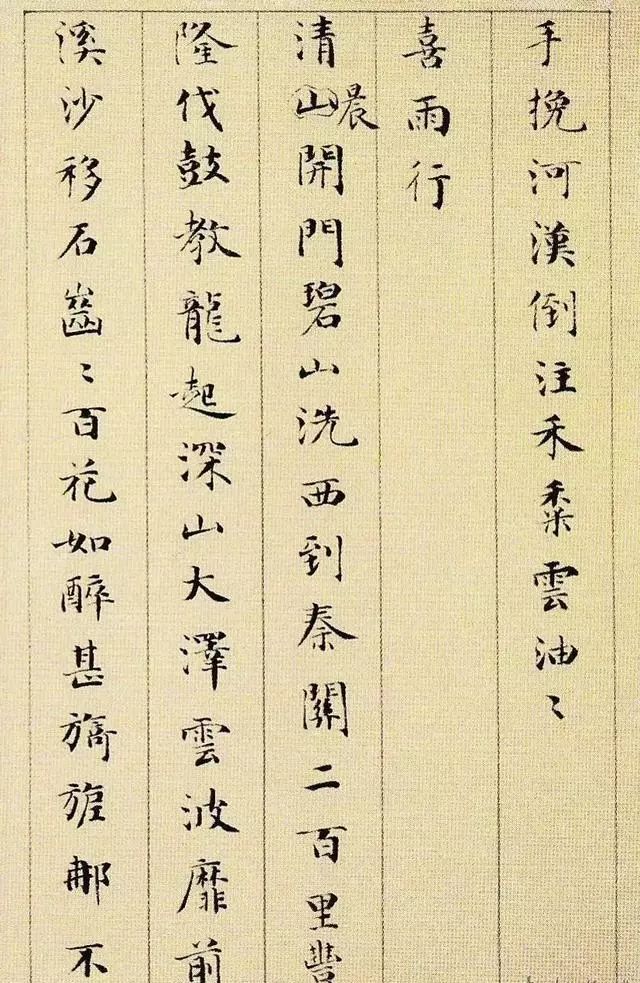 手挽河漢倒注禾黍雲油〻
喜雨行
清山晨開門碧山洗西到秦關二百里豐
隆伐鼓教龍起深山大澤雲波靡前
溪沙移石齒〻百花如醉甚旖旎那不